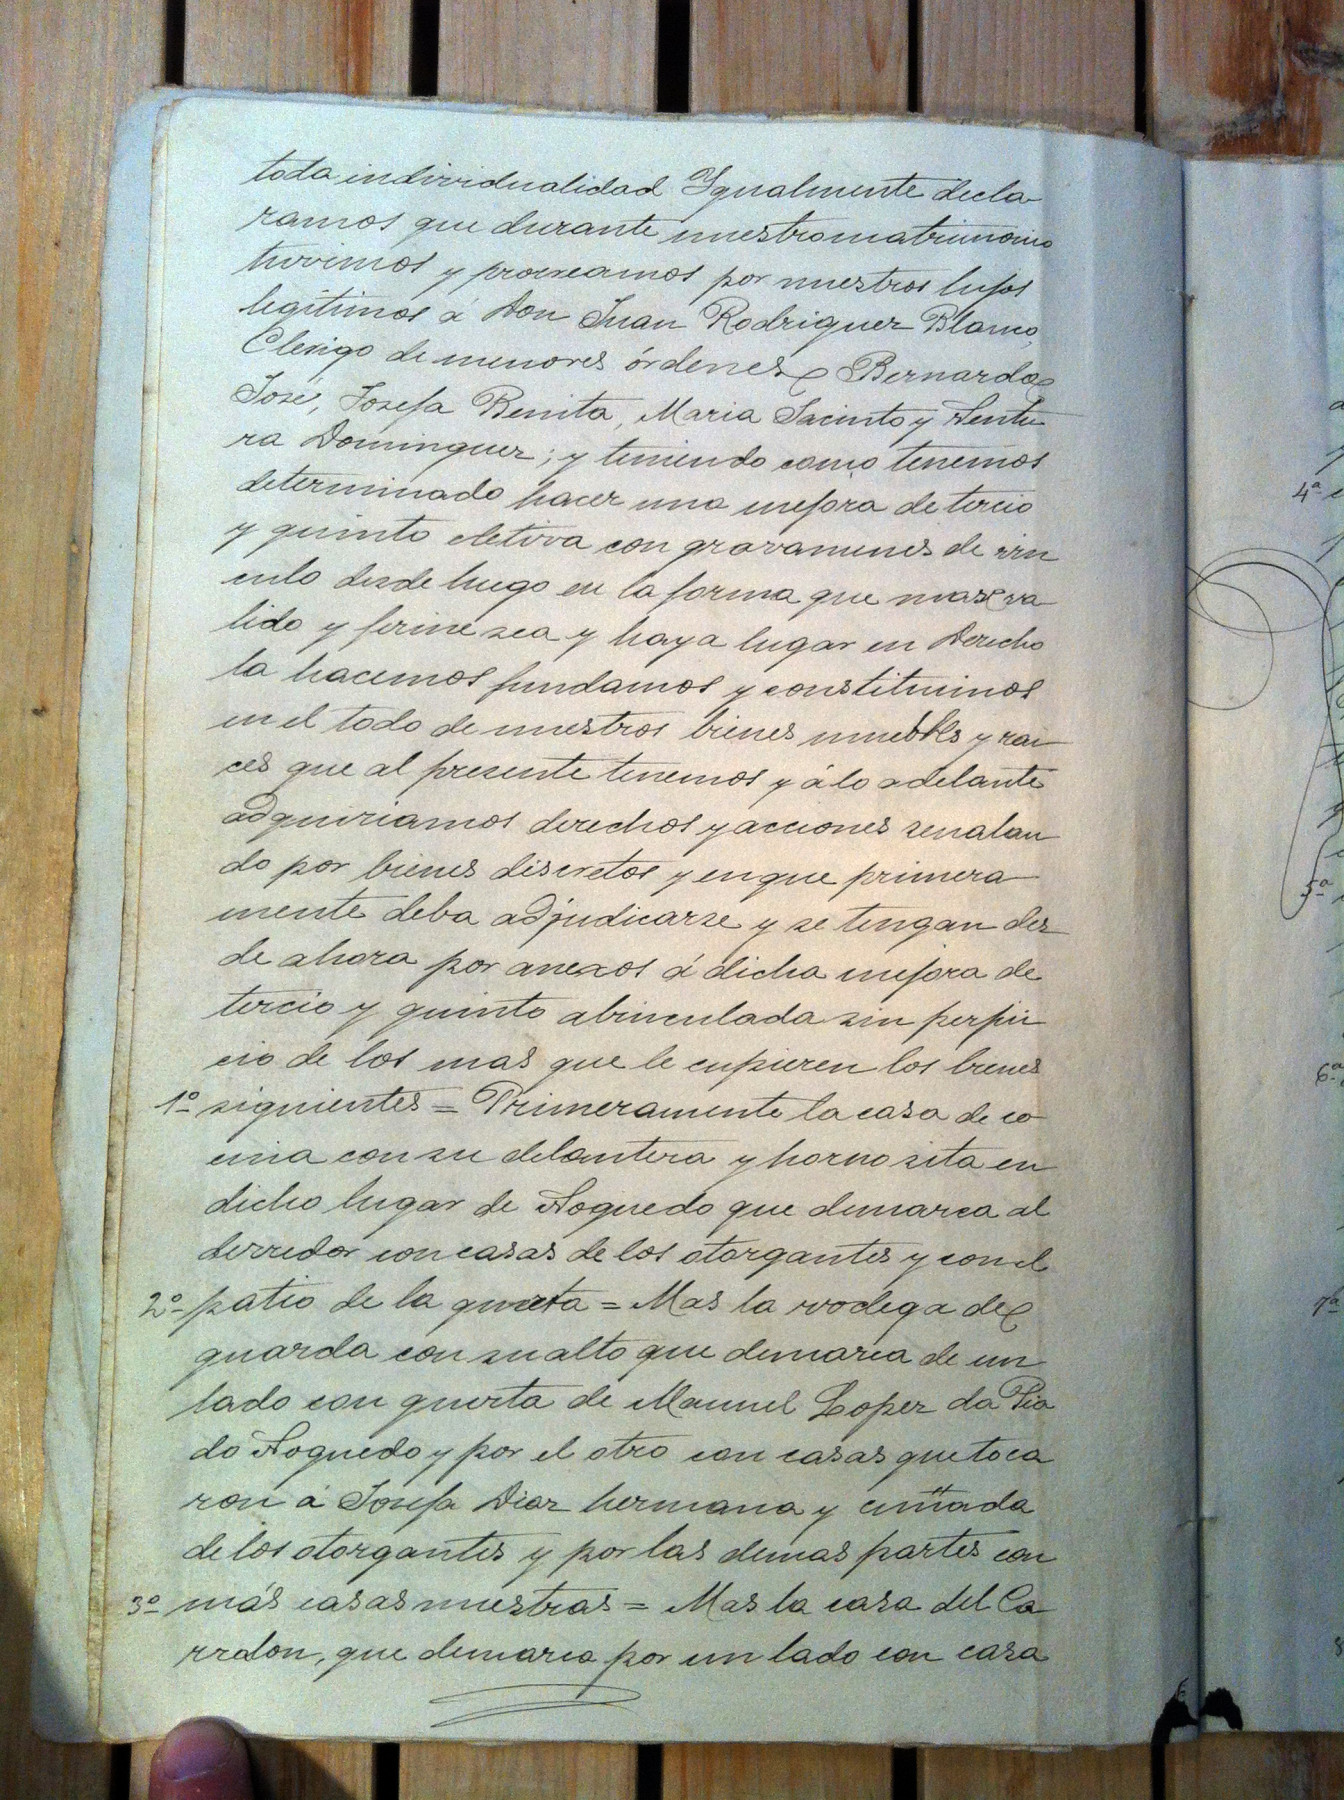 toda individualidad Ygualmente decla-
ramos que durante nuestro matrimonio
tuvimos y procreamos por nuestros hijos
legítimos á Don Juan Rodriguez Blanco,
Clerigo de menores órdenes Bernardo
José, Josefa Benita, Maria Jacinto y Ventu
ra Dominguez; y teniendo como tenemos
determinado hacer una mejora de tercio
y quinto eletiva con gravamenes de vin
culo desde luego en la forma que mas va
lido y firme sea y haya lugar en Derecho
la hacemos fundamos y constituimos
en el todo de nuestros bienes muebles y rai
ces que al presente tenemos y á lo adelante
adquiriamos derechos y acciones senalan
do por bienes discretos y en que primera
mente deba adjudicarse y se tengan des
de ahora por anexos á dicha mejora de
tercio y quinto abinculada sin perjui
cio de los mas que le cupieren los bienes
1º siguientes = Primeramente la casa de co
cina con su delantera y horno sita en
dicho lugar de Noguedo que demarca al
derredor con casas de los otorgantes y con el
2º patio de la querta = Mas la vodega de
guarda con su alto que demarca de un
lado con querta de Manuel Lopez da Pia
do Noguedo y por el otro con casas que toca
ron á Josefa Diaz hermana y cuñada
de los otorgantes y por las demas partes con
3º más casas nuestras = Mas la casa del Ca
rralon, que demarca por un lado con casa
4ª
5ª
6ª
7ª